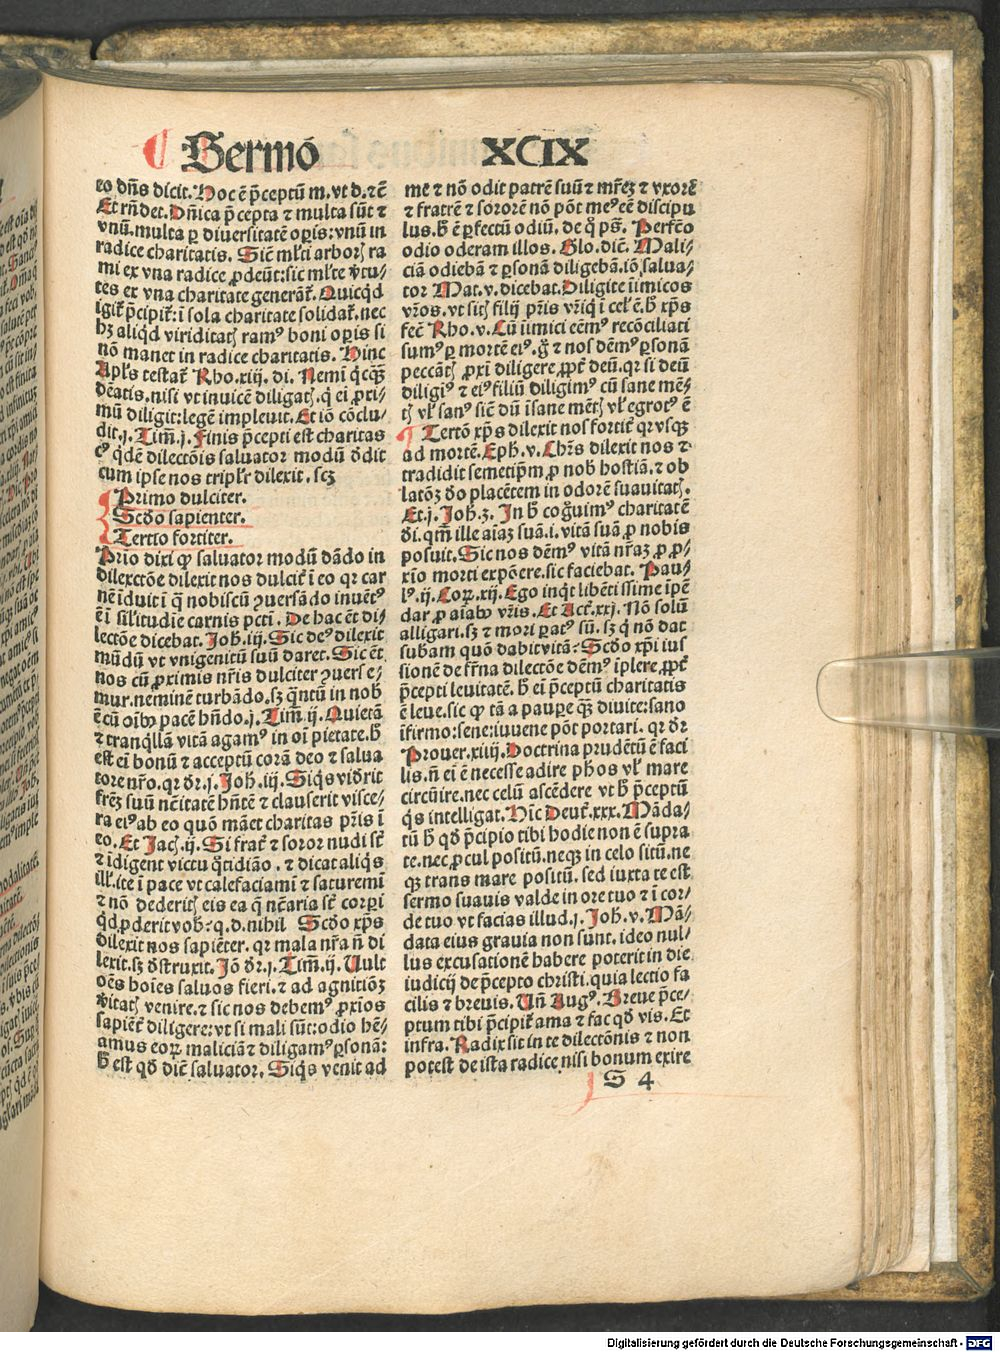 Sermõ XCIX
eo dñs dicit. Hoc ẽ p̃ceptũ m. vt d. ⁊ cẽ
Et rñdet. Dñica p̃cepta ⁊ multa sũt ⁊
vnũ. multa ꝑ diuersitatẽ oꝑis: vnũ in
radice charitatis. Sicut mľti arboꝝ ra
mi ex vna radice ꝓdeũt: sic mľte v̓tu/
tes ex vna charitate generãt̃. Quicq̃d
igit̃ p̃cipit̃: ĩ sola charitate solidat̃. nec
hꝫ aliq̃d viriditatꝭ ramꝰ boni oꝑis si
nõ manet in radice charitatis. Hinc
Apľs testat̃ Rho. xiij. di. Nemĩ q̃cq̃ꝫ
debeatis. nisi vt inuicẽ diligatꝭ. q̇ ei ꝓxi/
mũ diligit: legẽ impleuit. Et iõ cõclu/
dit. j. Tim̃. j. Finis p̃cepti est charitas
cꝰ q̃dẽ dilectõis saluator modũ ꝺdit
cum ipse nos tripľr dilexit. scꝫ
Primo dulciter.
Scꝺo sapienter.
Tertio fortiter.
Prĩo dixi ꝙ saluator modũ dãdo in
dilexctõe dilexit nos dulcit̃ ĩ eo qꝛ car
nẽ ĩduit ĩ q̃ nobiscũ ꝯuersãdo inuẽtꝰ
ẽ ĩ siľitudĩe carnis pcti. De hac ẽt di/
lectõe dicebat. Joh. iij. Sic deꝰ dilexit
mũdũ vt vnigenitũ suũ daret. Sic ẽt
nos cũ ꝓximis nr̃is dulciter ꝯuerse/
mur. neminẽ turbãdo. sꝫ q̃ntũ in nob̃
ẽ cũ oĩbꝰ pacẽ hñdo. j. Tim̃. ij. Quietã
⁊ tranq̃llã vitã agamꝰ in oĩ pietate. h̃
est eĩ bonũ ⁊ acceptũ corã deo ⁊ salua
tore nr̃o. qꝛ dr̃. j. Joh. iij. Siq̃s viꝺrit
fr̃eꝫ suũ nc̃itatẽ hñtẽ ⁊ clauserit visce/
ra eiꝰ ab eo quõ mãet charitas pr̃is ĩ
eo. Et Jac. ij. Si frat̃ ⁊ soror nudi sĩt
⁊ ĩdigent victu q̃tidião. ⁊ dicat aliq̃s
ilľ. ite ĩ pace vt calefaciamĩ ⁊ saturemĩ
⁊ nõ dederitꝭ eis ea q̃ nc̃aria sĩt corꝑi
q̃d ꝓderit vob̃: q. d. nihil Scꝺo xp̃s
dilexit nos sapiẽter. qꝛ mala nr̃a ñ di
lexit. sꝫ ꝺstruxit. Jõ dr̃. j. Tim̃. ij. Vult
oẽs hoĩes saluos fieri. ⁊ ad agnitiõꝫ
v̓itatꝭ venire. ⁊ sic nos debemꝰ ꝓxĩos
sapiẽt̃ diligere: vt si mali sũt: odio hẽ/
amus eoꝝ maliciã ⁊ diligamꝰ ꝑsonã:
h̃ est qꝺ dic̃ saluator. Siq̃s venit ad
me ⁊ nõ odit patrẽ suũ ⁊ mr̃eꝫ ⁊ vxorẽ
⁊ fratrẽ ⁊ sororẽ nõ põt meꝰ eẽ discipu
lus. h̃ ẽ ꝑfectũ odiũ. de q̊ ps̃. Perfẽo
odio oderam illos. Glo. dic̃. Mali/
ciã odiebã ⁊ ꝑsonã diligebã. iõ salua/
tor Mat. v. dicebat. Diligite ĩimicos
vr̃os. vt sitꝭ filij pr̃is vr̃i q̇ ĩ cel̃ ẽ. h̃ xp̃s
fec̃ Rho. v. Cũ ĩimici eẽmꝰ recõciliati
sumꝰ ꝑ mortẽ eiꝰ. g̃ ⁊ nos dẽmꝰ ꝑsonã
peccãtꝭ ꝓxĩ diligere ꝓpt̃ deũ. qꝛ si deũ
diligiꝰ ⁊ eiꝰ filiũ diligimꝰ cũ sane mẽ/
tꝭ vľ sanꝰ sic̃ dũ ĩsane mẽtꝭ vľ egrotꝰ ẽ
Tertõ xp̃s dilexit nos fortit̃ qꝛ vsqꝫ
ad mortẽ. Eph. v. Chr̃s dilexit nos ⁊
tradidit semetip̃m ꝓ nob̃ hostiã. ⁊ ob
latõꝫ ꝺo placẽtem in odorẽ suauitatꝭ.
Et. j. Joh. 3. In h̃ cog̃uim̃ charitatẽ
ꝺi. qm̃ ille aĩaꝫ suã. i. vitã suã ꝓ nobis
posuit. Sic nos dẽmꝰ vitã nr̃aꝫ ꝓ ꝓ/
xĩo morti expõere. sic faciebat. Pau/
lꝰ. ij. Coꝝ. xij. Ego inq̃t libẽtissime ĩpẽ
dar ꝓ aĩabꝰ vr̃is. Et Act̃. xxj. Nõ solũ
alligari. sꝫ ⁊ mori ꝑatꝰ sũ. sꝫ q̇ nõ dat
subam quõ dabit vitã? Scꝺo xp̃i ius
sionẽ de fr̃na dilectõe dẽmꝰ ĩplere ꝓpt̃
p̃cepti leuitatẽ. h̃ ei p̃ceptũ charitatis
ẽ leue. sic ꝙ tã a pauꝑe q̃ꝫ diuite: sano
ĩfirmo: sene: iuuene põt portari. qꝛ dr̃
Prouer. xiiij. Doctrina prudẽtũ ẽ faci
lis. ñ ei ẽ necesse adire phos vľ mare
circũire. nec celũ ascẽdere vt h̃ p̃ceptũ
q̃s intelligat. Hic̃ Deut̃. xxx. Mãda/
tũ h̃ qꝺ p̃cipio tibi hodie non ẽ supra
te. nec ꝓcul positũ. neqꝫ in celo sitũ. ne
qꝫ trans mare positũ. sed iuxta te est
sermo suauis valde in ore tuo ⁊ ĩ cor/
de tuo vt facias illud. j. Joh. v. Mã/
data eius grauia non sunt. ideo nul/
lus excusationẽ habere poterit in die
iudicij de p̃cepto christi. quia lectio fa
cilis ⁊ breuis. Vñ Augꝰ. Breue p̃ce/
ptum tibi p̃cipit̃ ama ⁊ fac qꝺ vis. Et
infra. Radix sit in te dilectõnis ⁊ non
potest de ista radice nisi bonum exire
S 4
Digitalisierung gefördert durch die Deutsche Forschungsgemeinschaft - DFG